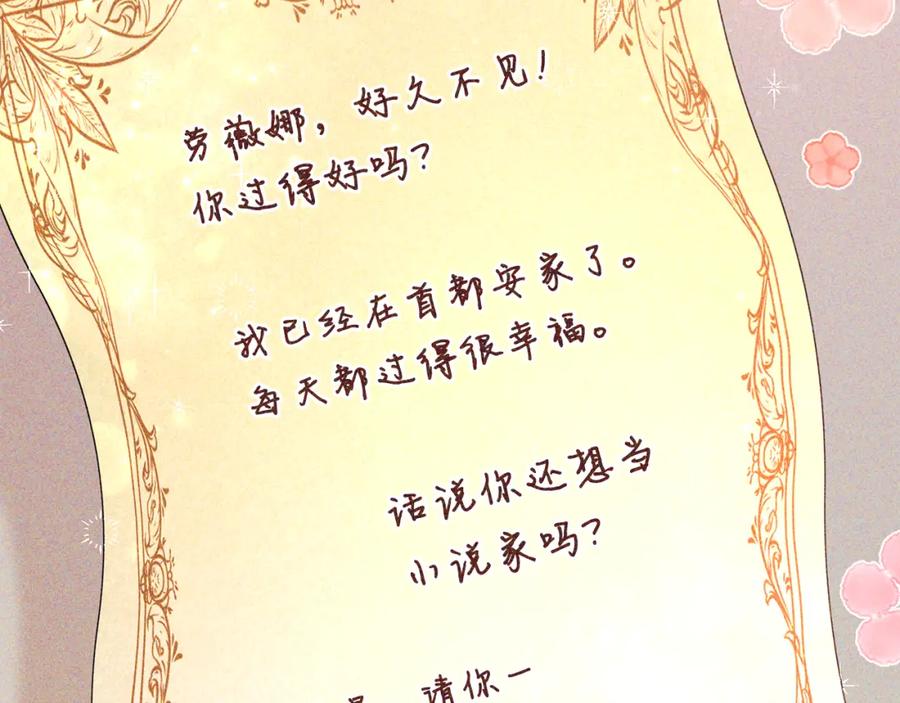 劳薇娜，好久不见！
你过得好吗？
我已经在首都安家了。
每天都过得很幸福。
话说你还想当
小说家吗？
请你一